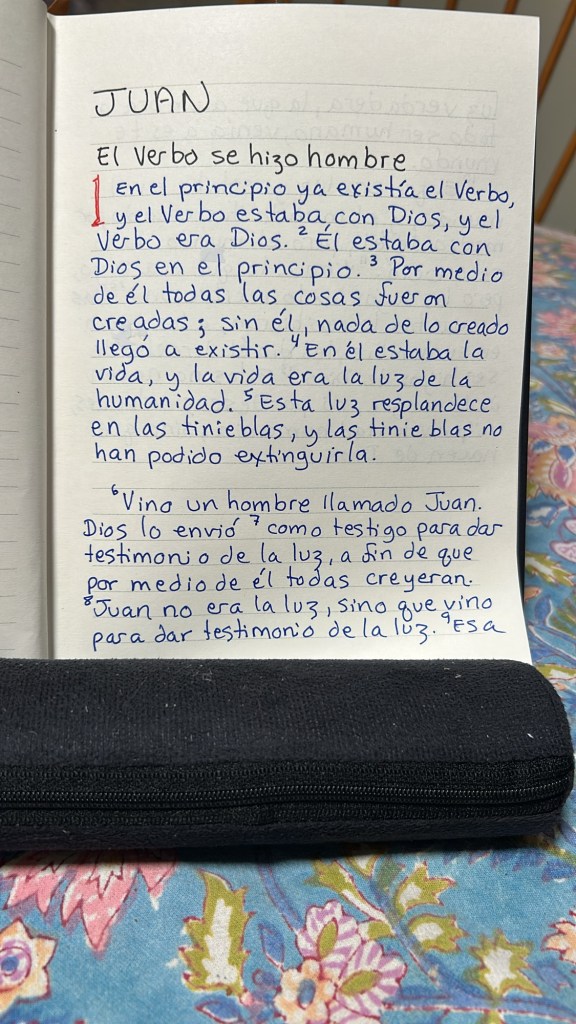 JUAN
El Verbo se hizo hombre
1 En el principio ya existía el Verbo,
y el Verbo estaba con Dios, y el
Verbo era Dios. 2 Él estaba con
Dios en el principio. 3 Por medio
de él todas las cosas fueron
creadas; sin él, nada de lo creado
llegó a existir. 4 En él estaba la
vida, y la vida era la luz de la
humanidad. 5 Esta luz resplandece
en las tinieblas, y las tinieblas no
han podido extinguirla.
6 Vino un hombre llamado Juan.
Dios lo envió 7 como testigo para dar
testimonio de la luz, a fin de que
por medio de él todas creyeran.
8 Juan no era la luz, sino que vino
para dar testimonio de la luz. 9 Esa